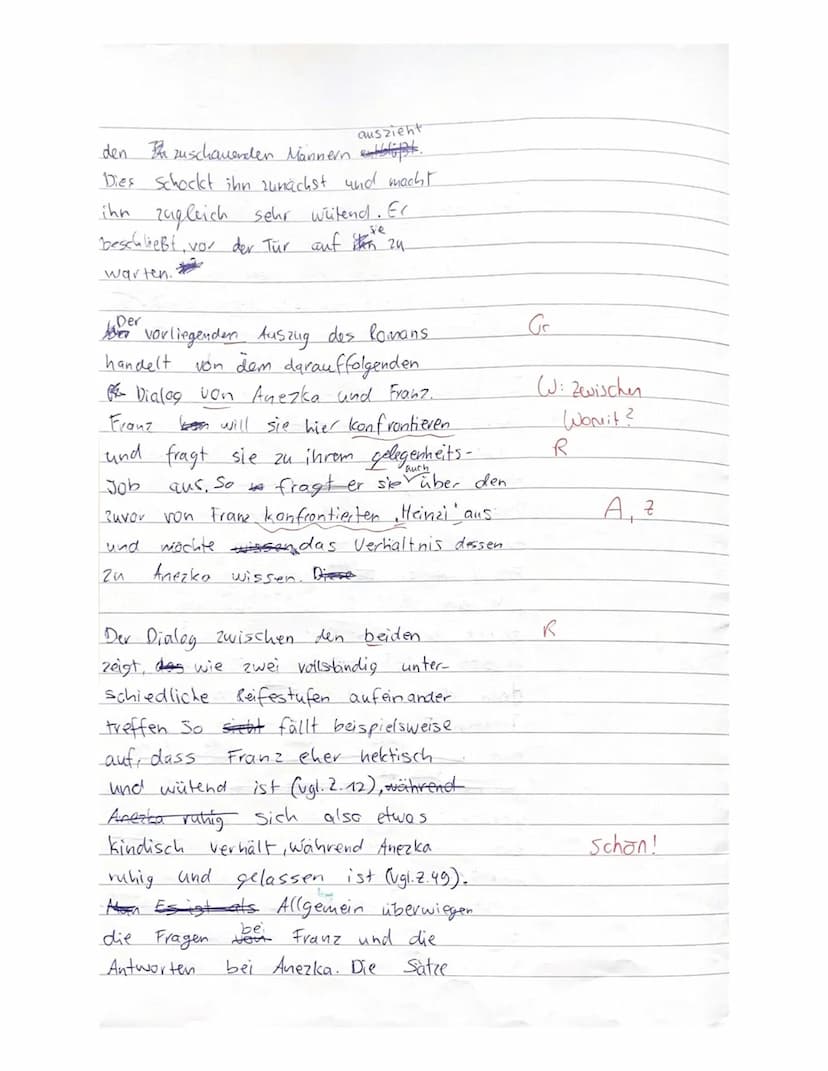 auszieht
den zuschauenden Männern entblößt.
Dies schockt ihn zunächst und macht
ihn zugleich sehr wütend. Er
beschließt, vor der Tür auf sie zu
warten.
Der vorliegenden Auszug des Romans Gr
handelt von dem darauffolgenden
Dialog von Anezka und Franz. W: zwischen
Franz will sie hier konfrontieren Womit?
und fragt sie zu ihrem gelegenheits- R
Job aus. So fragt er sie auch über den
zuvor von Franz konfrontierten „Heinzi‘ aus A, Z
und möchte wissen das Verhältnis dessen
zu Anezka wissen. Diese
Der Dialog zwischen den beiden R
zeigt, das wie zwei vollständig unter-
schiedliche Reifestufen aufeinander
treffen So siebt fällt beispielsweise
auf, dass Franz eher hektisch
und wütend ist (vgl. Z. 12), während
Anezka ruhig sich also etwas
kindisch verhält, während Anezka schön!
ruhig und gelassen ist (vgl. Z. 49).
Es ist als Allgemein überwiegen
die Fragen von bei Franz und die
Antworten bei Anezka. Die Sätze